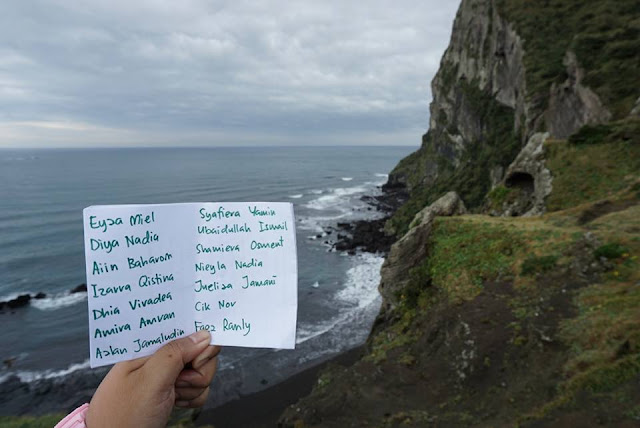 Eyza Miel
Diya Nadia
Aiin Baharom
Izarra Qistina
Dhia Vivadea
Amira Amran
Azlan Jamaludin
Syafiera Yamin
Ubaidullah Ismail
Shmiera Osment
Nieyla Nadia
Jueliza Jamani
Cik Nor
Faez Ramly